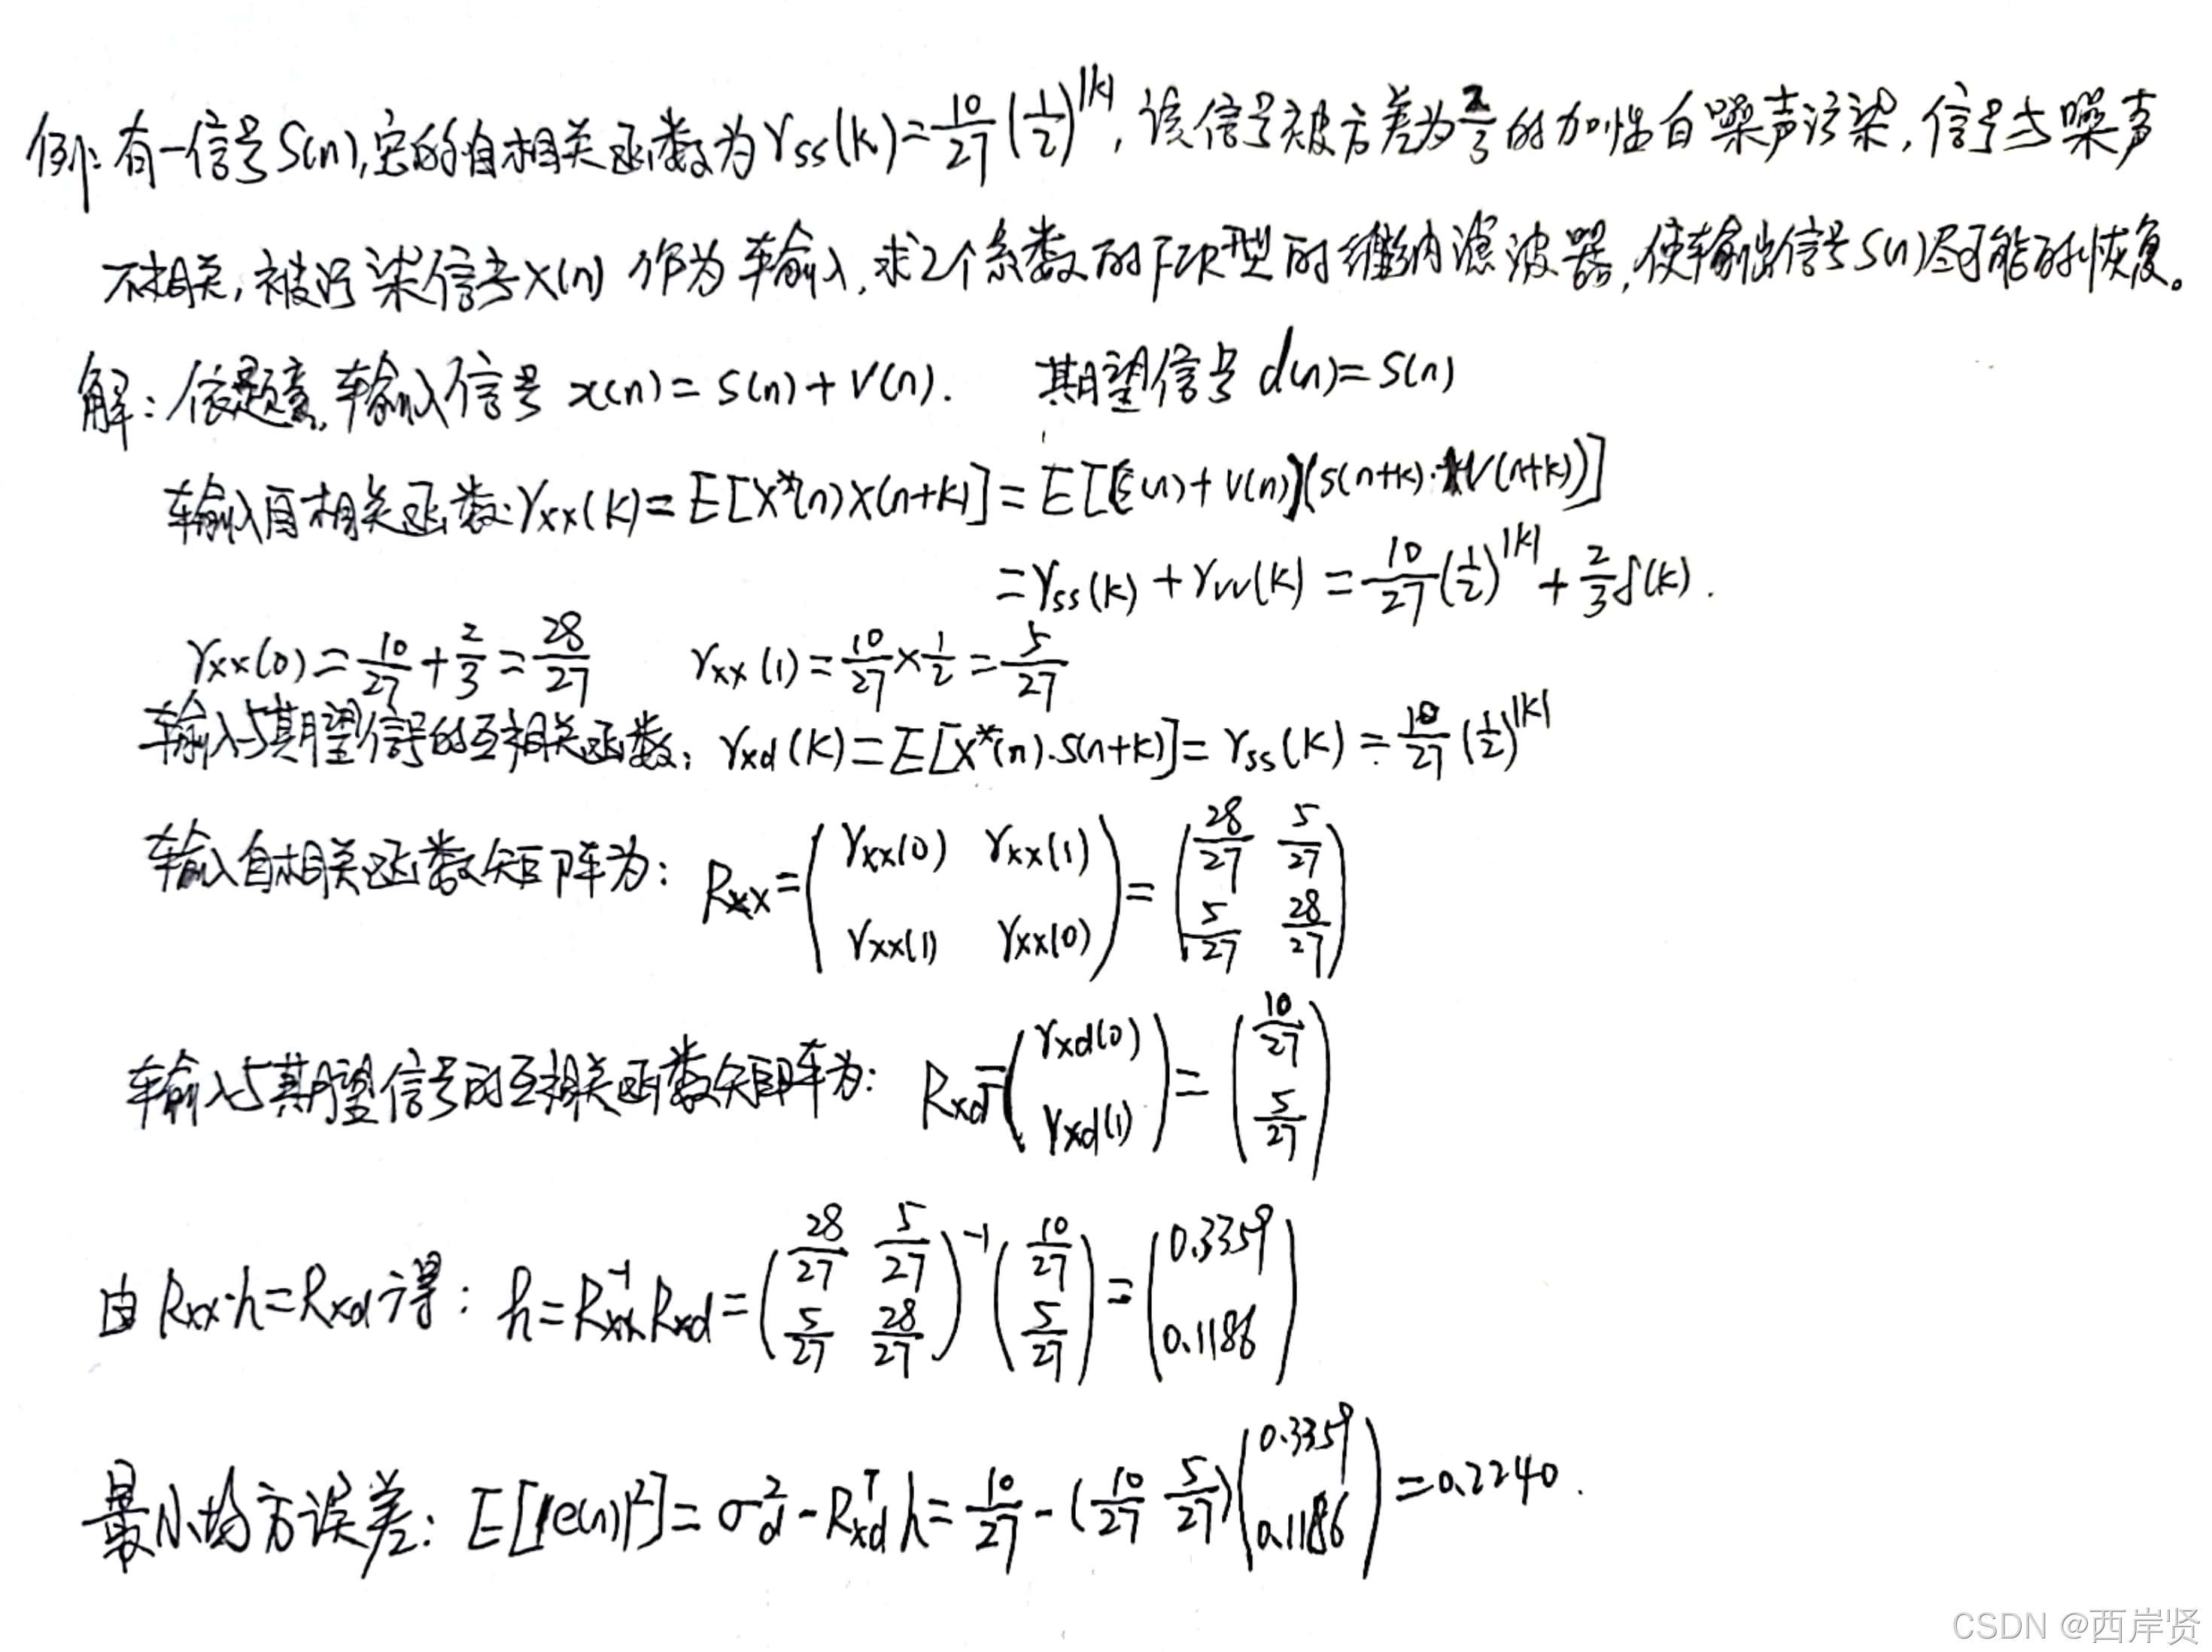 例:有一信号S(n),它的自相关函数为γss(k)=10/27(1/2)^|k|,该信号被方差为2/3的加性白噪声污染,信号与噪声
不相关,被污染信号X(n)作为输入,求2个系数的FIR型的维纳滤波器,使输出信号S(n)尽可能的恢复。
解:依题意,输入信号 x(n)=S(n)+V(n). 期望信号 d(n)=S(n)
输入自相关函数:γxx(k)=E[X*(n)X(n+k)]=E[(S(n)+V(n))(S(n+k)+V(n+k))]
=γss(k)+γvv(k)=10/27(1/2)^|k|+2/3δ(k).
γxx(0)=10/27+2/3=28/27 γxx(1)=10/27×1/2=5/27
输入与期望信号的互相关函数:γxd(k)=E[X*(n)·S(n+k)]=γss(k)=10/27(1/2)^|k|
输入自相关函数矩阵为:Rxx=(γxx(0) γxx(1); γxx(1) γxx(0))=(28/27 5/27; 5/27 28/27)
输入与期望信号的互相关函数矩阵为:Rxd=(γxd(0); γxd(1))=(10/27; 5/27)
由Rxx·h=Rxd得:h=Rxx^-1 Rxd=(28/27 5/27; 5/27 28/27)^-1(10/27; 5/27)=(0.3359; 0.1186)
最小均方误差:E[|e(n)|^2]=σd^2-Rxd^T h=10/27-(10/27 5/27)(0.3359; 0.1186)=0.2240.
CSDN @西岸贤